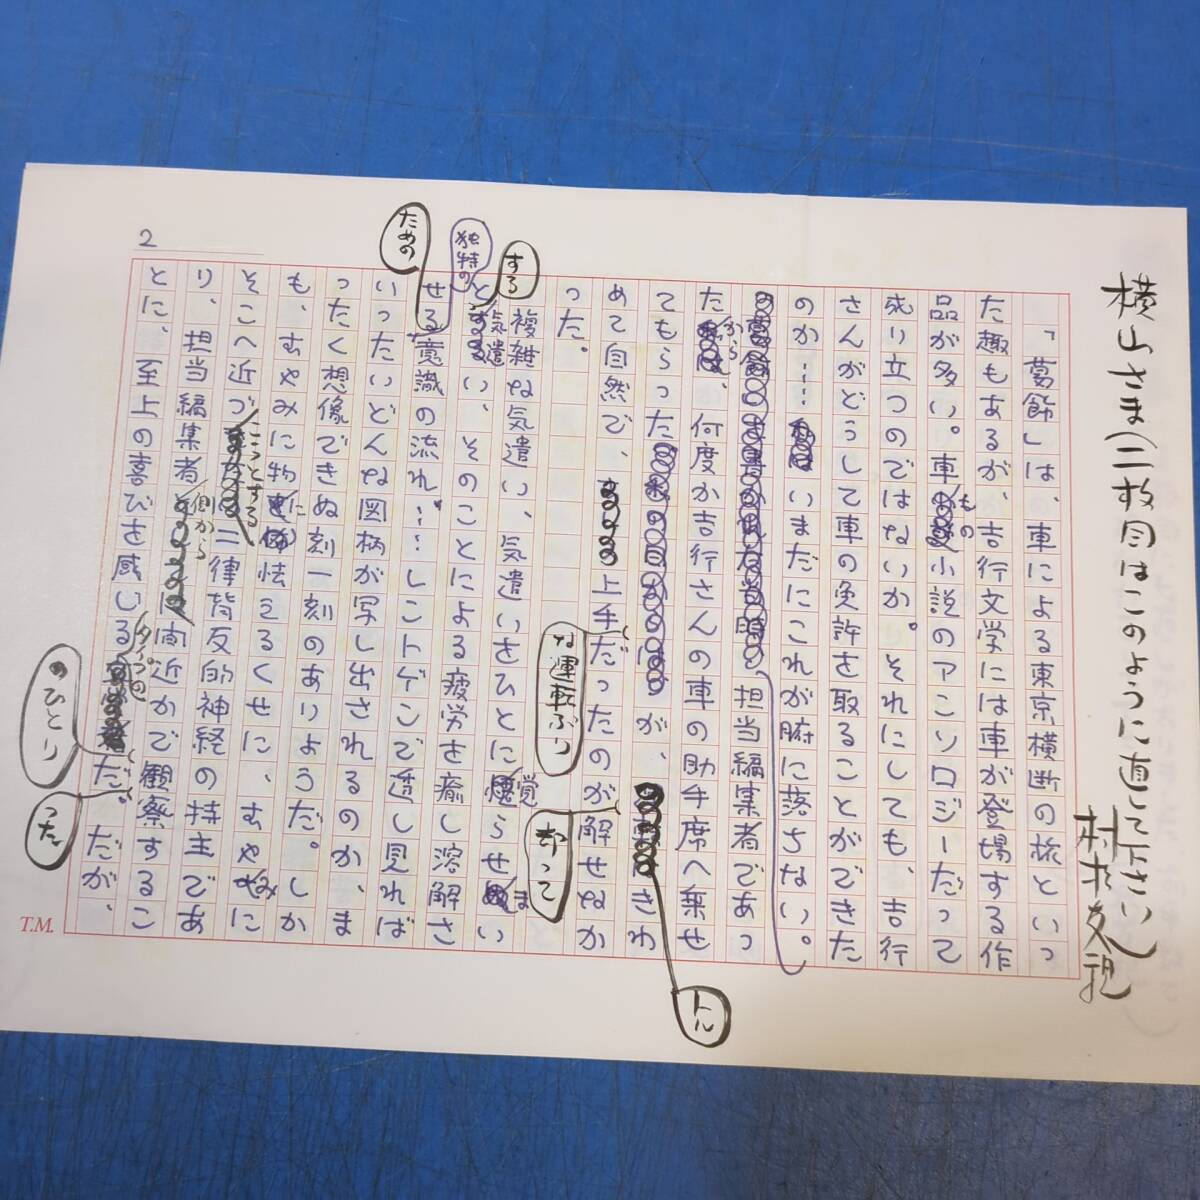 横山さま(二枚目はこのように直して下さい)
村松友視
2
「葛飾」は、車による東京横断の旅といっ
た趣もあるが、吉行文学には車が登場する作
品が多い。車もの小説のアンソロジーだって
成り立つのではないか。それにしても、吉行
さんがどうして車の免許を取ることができた
のか……いまだにこれが腑に落ちない。
担当編集者であっ
たから、何度か吉行さんの車の助手席へ乗せ
てもらったが、きわ
トル
めて自然で、上手な運転ぶりだったのが却って解せぬか
った。
複雑な気遣い、気遣いをひとに覚らせまい
とする気遣い、そのことによる疲労を癒し溶解さ
せるための独特の意識の流れ……レントゲンで透し見れば
いったいどんな図柄が写し出されるのか、ま
ったく想像できぬ刻一刻のありようだ。しか
も、むやみに物に怯えるくせに、むやみに
そこへ近づこうとする二律背反的神経の持主であ
り、担当編集者側から間近かで観察するこ
とに、至上の喜びを感じるタイプのひとりだった。だが、
T.M.